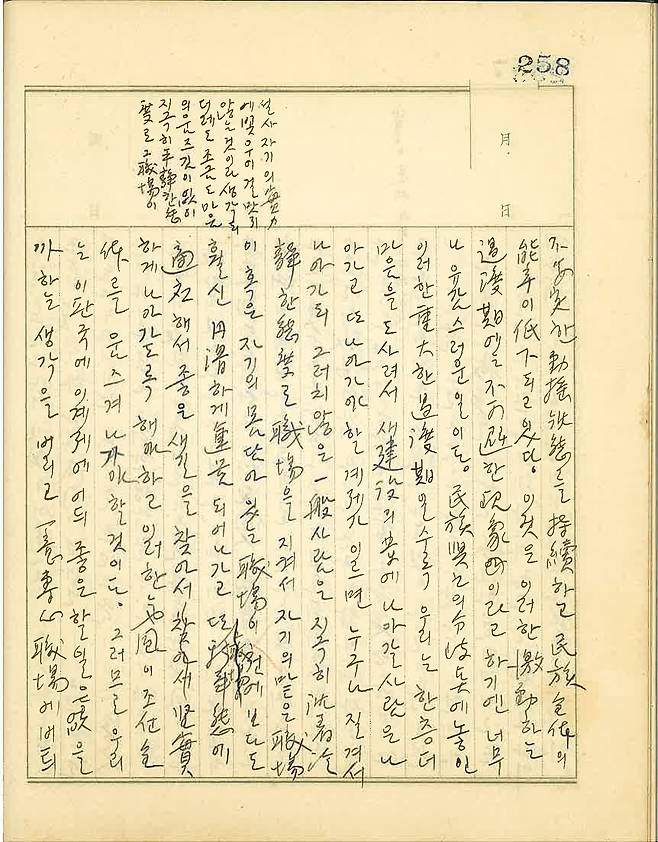 258
月
日
설사 자기의 實力
에 맞우어 걸맞지
않는 것이라 생각되
더래도 조금도 마음
의 운즈깃이 없이
지극히 平靜한 態
度로 그 職場이
한 動搖狀態를 持續하고 民族全体의
能率이 低下되고 있다. 이것은 이러한 激動하는
過渡期에는 不可避한 現象이라고 하기엔 너무
나 유감스러운 일이다. 民族興亡의 分岐点에 놓인
이러한 重大한 過渡期일수록 우리는 한층 더
마음을 도사려서 새 建設의 면에 나아갈 사람은 나
아가고 또 나아가야 할 계제가 있으면 누구나 질겨서
나아가되 그러치 않은 一般 사람은 지극히 沈着冷
靜한 態度로 職場을 지켜서 자기의 맡은 職場
이 혹은 자기의 몸담아 있는 職場이 전에 보다도
훨신 円滑하게 運営되어 나가고 또 新事態에
適応해서 좋은 새 길을 찾아서 참아서 堅實
하게 나아가도록 해야 하고 이러한 氣風이 조선 全
体를 움즈겨 나가야 할 것이다. 그러므로 우리
는 이 판국에 이 계제에 어듸 좋은 할 일은 없을
까 하는 생각을 버리고 一意專心 職場에 버티